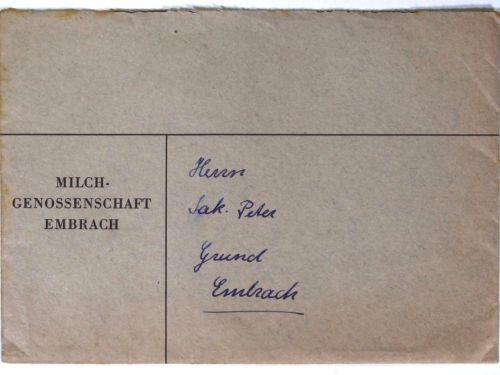 MILCH-
GENOSSENSCHAFT
EMBRACH
Herrn
Jak. Peter
Grund
Embrach